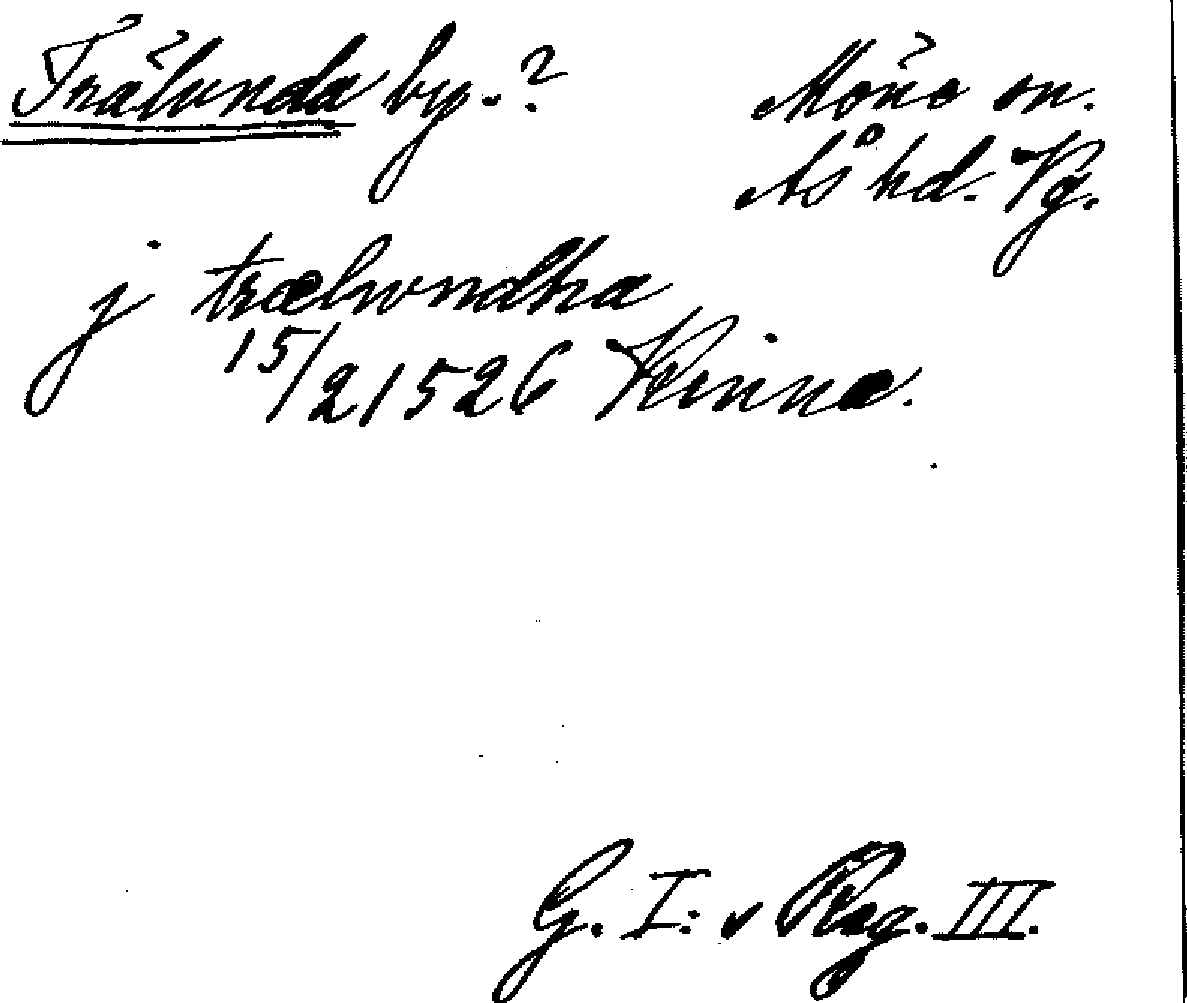 Trälunda by.?
Möne sn.
Ås hd. Vg.
j trælwndha
15/2 1526 Kinna.
G. I:s Reg. III.